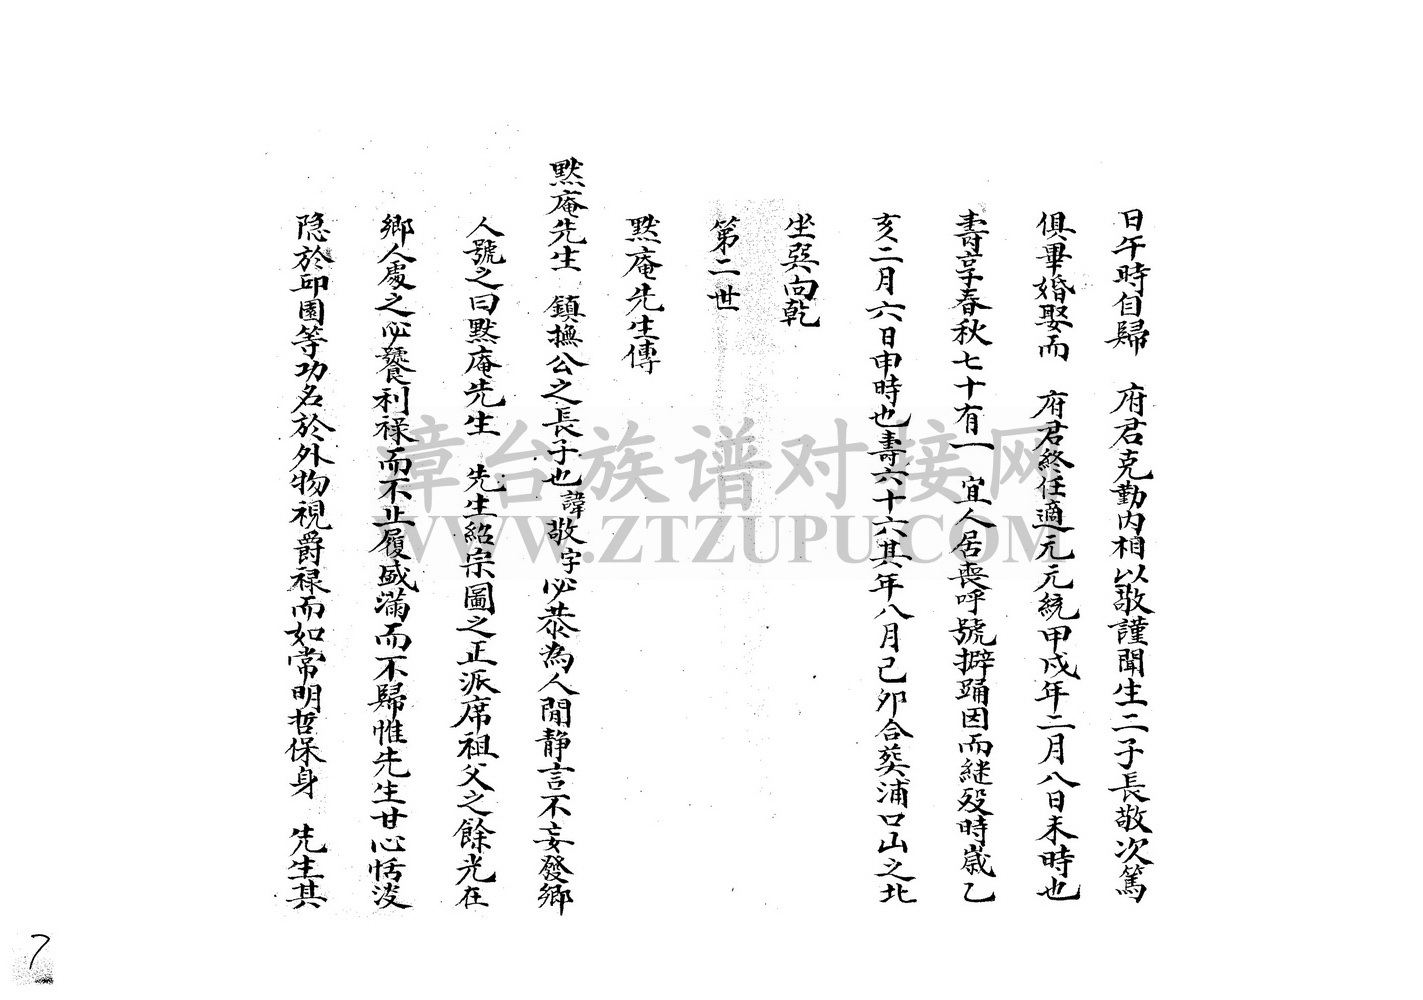 日午時自歸　府君克勤內相以敬謹聞生二子長敬次篤
俱畢婚娶而　府君終任適元元統甲戌年二月八日未時也
壽享春秋七十有一　宜人居喪呼號擗踊因而継歿時嵗乙
亥二月六日申時也壽六十六其年八月己卯合葬浦口山之北
坐巽向乾
第二世
黙庵先生傳
黙庵先生　鎮撫公之長子也諱敬字必恭為人閒静言不妄發鄉
人號之曰黙庵先生　先生紹宗圖之正派席祖父之餘光在
鄉人處之必饕利禄而不止履盛滿而不歸惟先生甘心恬淡
隐於邱園等功名於外物視爵禄而如常明哲保身　先生其
章台族谱对接网
WWW.ZTZUPU.COM
7